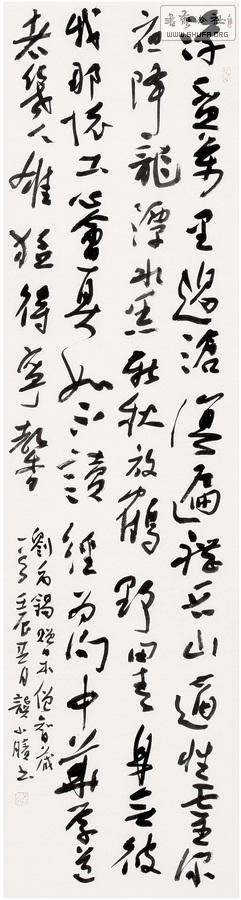 浮盃萬里過滄溟遍禮名山適性靈深
夜降龍潭水黑新秋放鶴野田青身無彼
我那懷土心會真如不讀經為問中華學道
者幾人雄猛得寧馨
劉禹錫贈日本僧智藏
壬辰 月龔小 书
WWW.SHUFA.ORG